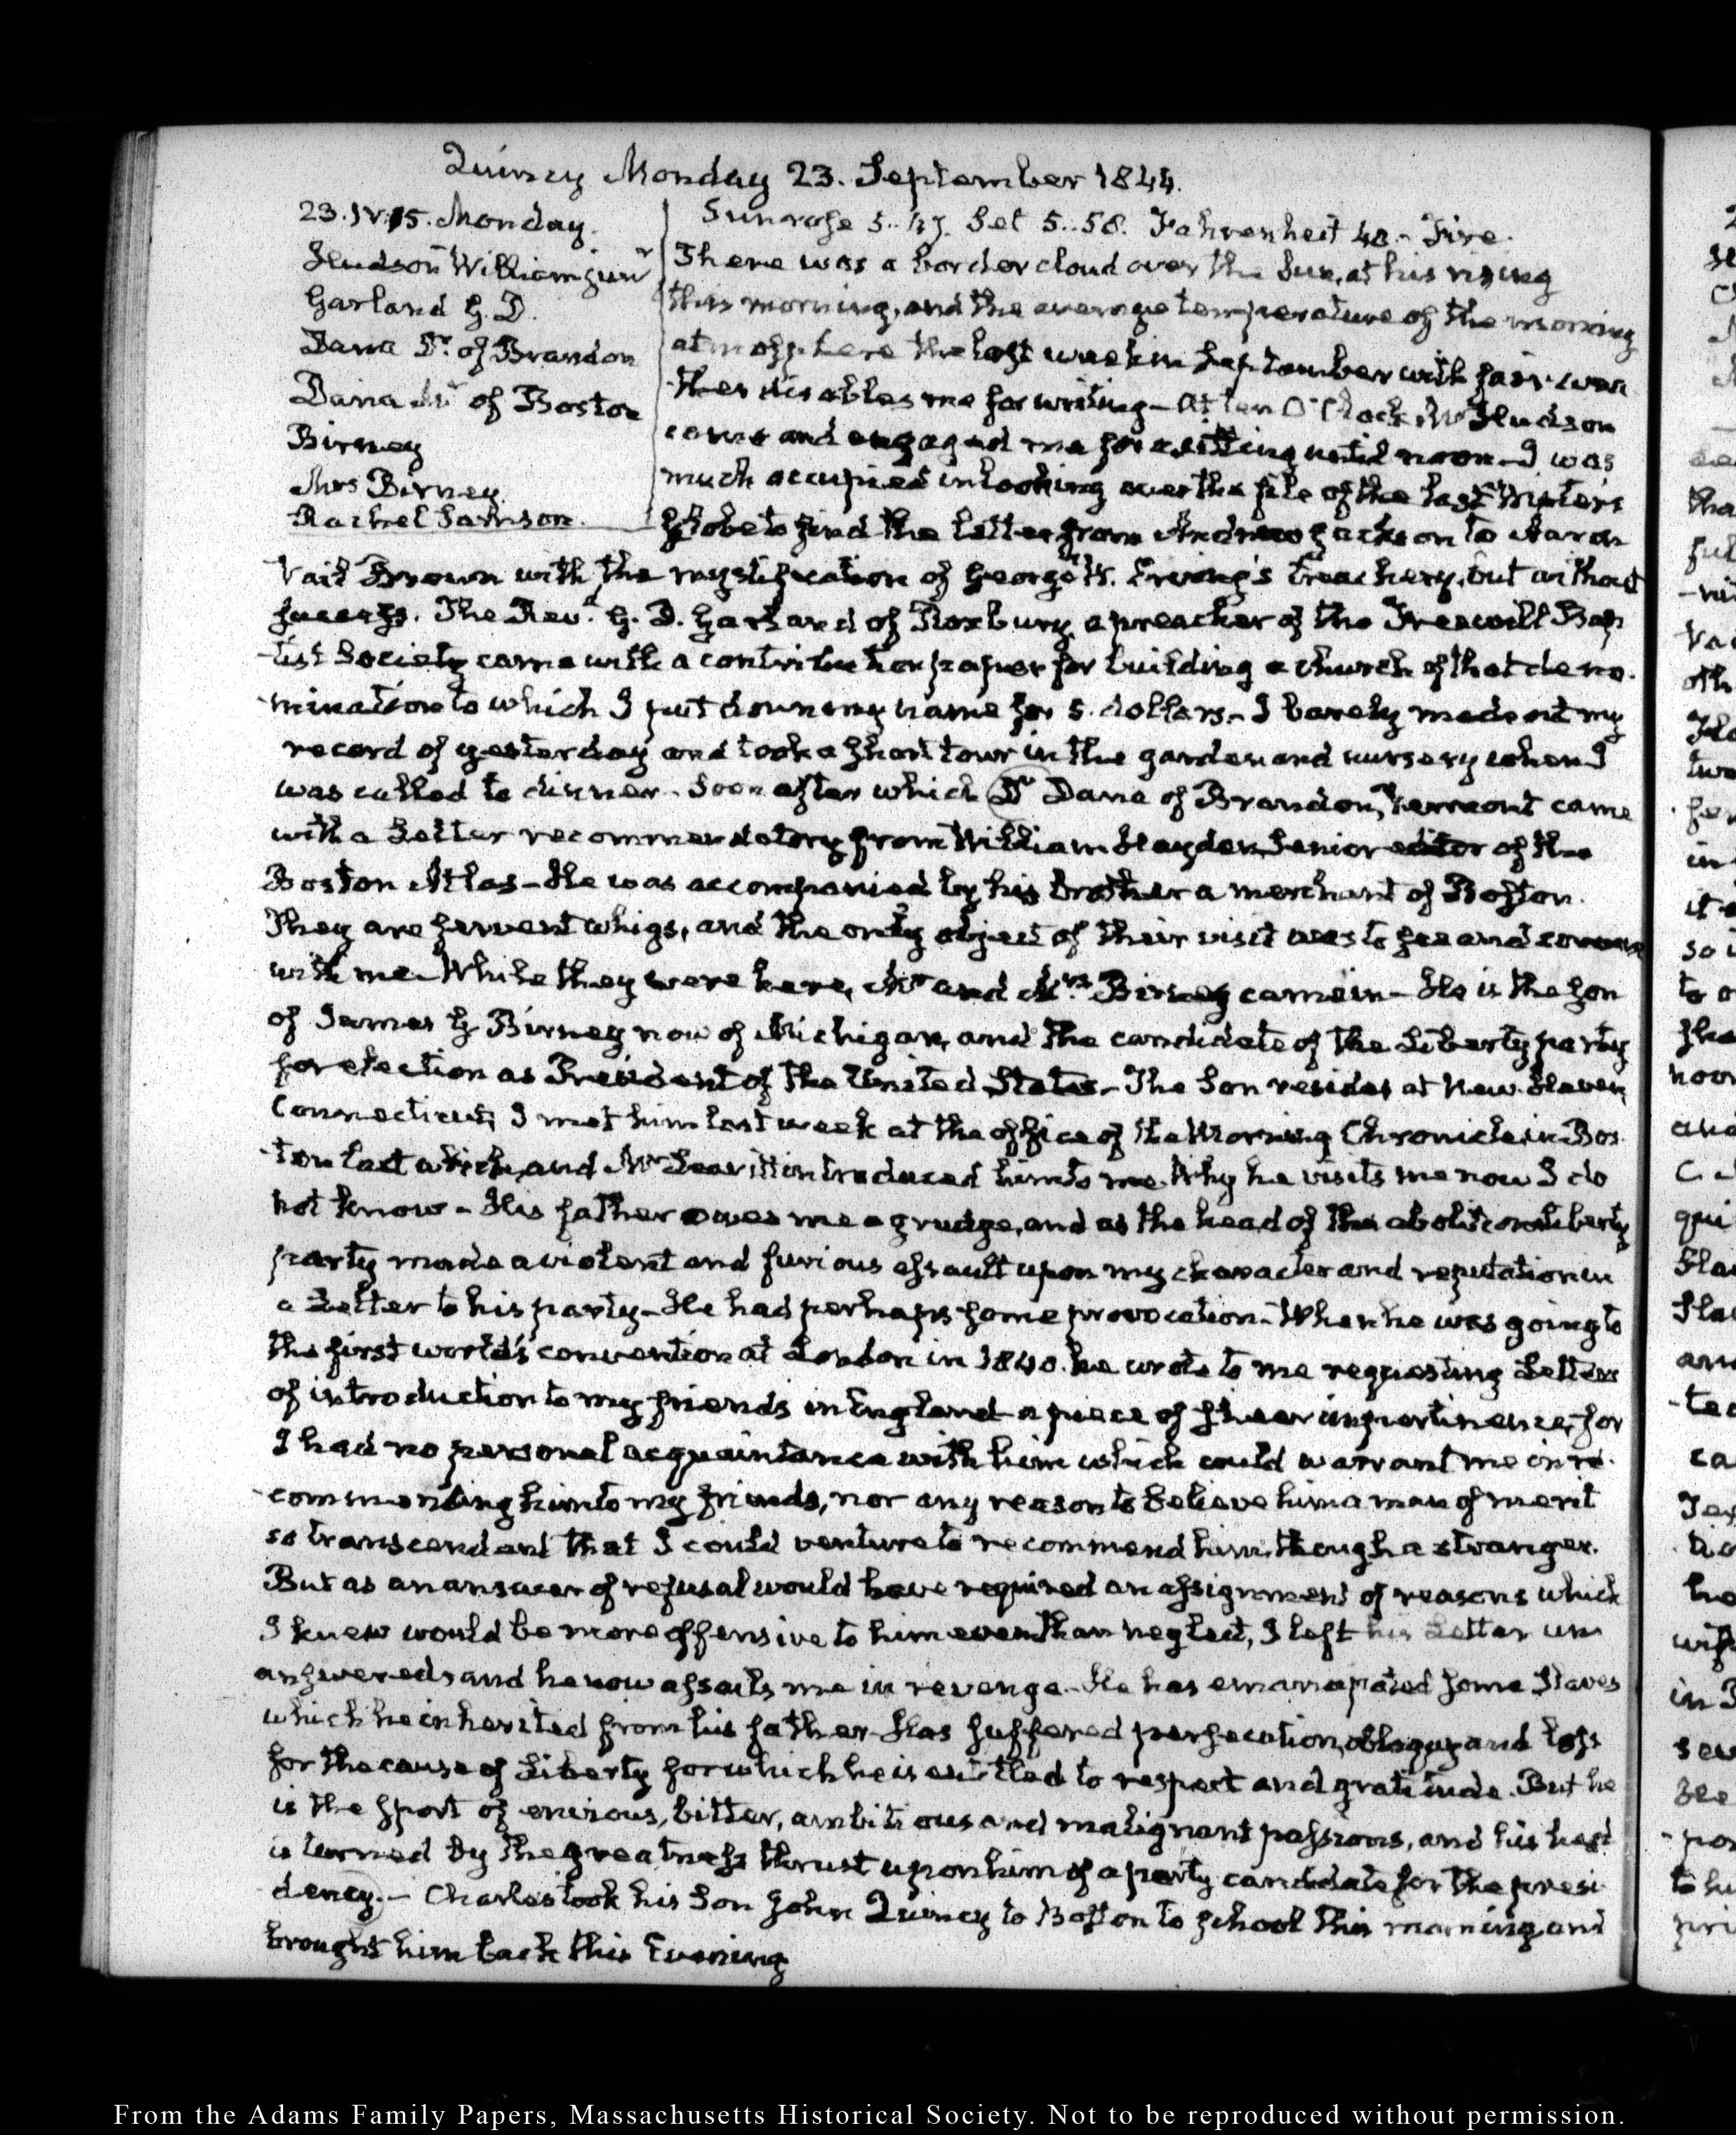 Quincy Monday 23. September 1844.
23. IV:15. Monday.
Hudson William junr
Garland G. D.
Dana Dr. of Brandon
Dana Mr of Boston
Birney
Mrs Birney
Rachel Samson.
Sunrose 5..47. Set 5..58. Fahrenheit 48.- Fire.
There was a border cloud over the Sun, at his rising
this morning, and the average temperature of the morning
atmosphere the last week in September with fair wea
ther disables me for writing – At ten O'Clock Mr Hudson
came and engaged me for a sitting until noon – I was
much occupied in looking over the file of the last Winter's
Globe to find the letter from Andrew Jackson to Aaron
Vail Brown with the mystification of George W. Erving's treachery, but without
success. The Revd. G. D. Garland of Roxbury, a preacher of the Freewill Bap
-tist Society came with a contribution paper for building a church of that deno-
-mination to which I put down my name for 5. dollars. – I barely made out my
record of yesterday and took a short tour in the garden and nursery when I
was called to dinner. Soon after which Dr Dana of Brandon, Vermont came
with a Letter recommendatory from William Hayden Senior editor of the
Boston Atlas – He was accompanied by his brother a merchant of Boston.
They are fervent whigs, and the only object of their visit was to see and converse
with me – While they were here, Mr and Mrs. Birney came in – He is the son
of James G Birney now of Michigan, and the candidate of the Liberty party
for election as President of the United States – The Son resides at New-Haven,
Connecticut, I met him last week at the office of the Morning Chronicle in Bos-
-ton last week, and Mr Leavitt introduced him to me. Why he visits me now I do
not know – His father owes me a grudge, and as the head of the abolition liberty
party made a violent and furious assault upon my character and reputation in
a Letter to his party – He had perhaps some provocation – When he was going to
the first world's convention at London in 1840. he wrote to me requesting Letters
of introduction to my friends in England – a piece of sheer impertinence, for
I had no personal acquaintance with him which could warrant me in re-
-commending him to my friends, nor any reason to believe him a man of merit
so transcendent that I could venture to recommend him, though a stranger.
But as an answer of refusal would have required an assignment of reasons which
I knew would be more offensive to him even than neglect, I left his Letter un
answered, and he now assails me in revenge – He has emancipated some Slaves
which he inherited from his father – Has suffered persecution, obloquy and loss
for the cause of Liberty for which he is entitled to respect and gratitude. But he
is the sport of envious, bitter, ambitious and malignant passions, and his head
is turned by the greatness thrust upon him of a party candidate for the presi-
dency. – Charles took his Son John Quincy to Boston to school this morning, and
brought him back this Evening
From the Adams Family Papers, Massachusetts Historical Society. Not to be reproduced without permission.